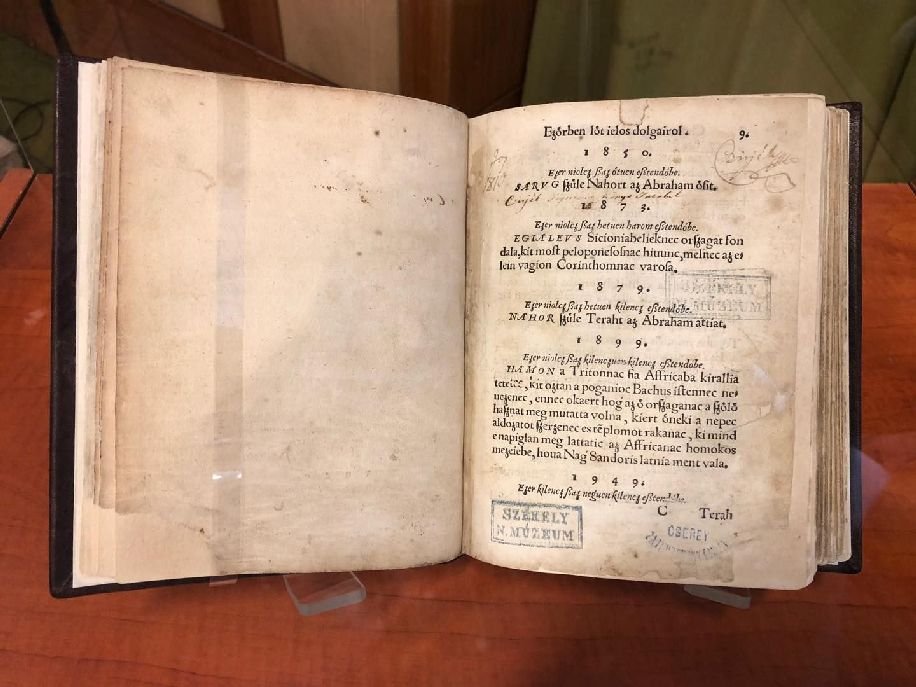 Eʒőrben lőt ielos dolgairol. 9.
1 8 5 0.
Eʒer niolcʒ ßaʒ ötuen eßtendöbe.
SARVG ſʒüle Nahort aʒ Abraham öſit.
1 8 7 3.
Eʒer niolcʒ ßaʒ hetuen harom eßtendöbe.
EGIALEVS Sicioniabelieknec orſʒagat fon
dala, kit moſt peloponeſoſnac hiiunc, melnec aʒ e⸗
lein vagion Corinthomnac varoſa.
1 8 7 9.
Eʒer niolcʒ ßaʒ hetuen kilencʒ eßtendöbe.
NAHOR ſʒüle Teraht aʒ Abraham attiat.
1 8 9 9.
Eʒer niolcʒ ßaʒ kilencʒuen kilencʒ eßtendöbe.
HAMON a Tritonnac fia Affricaba kirallia
tetetec, kit oʒtan a poganioc Bachus iſtennec ne⸗
ueʒenec, ennec okaert hog' aʒ ö orſʒaganac a ſʒőlő
haſʒnat meg mutatta volna, kiert őneki a nepec
aldoʒatot ſʒerʒenec es tēplomot rakanac, ki mind
e napiglan meg lattatic aʒ Affricanac homokos
meʒeiebe, houa Nag' Sandoris latnia ment vala.
1 9 4 9.
Eʒer kilencʒ ßaʒ neguen kilencʒ eßtendöbe.
C Terah
SZÉKELY
N. MÚZEUM
SZÉKELY
N. MÚZEUM
CSEREY